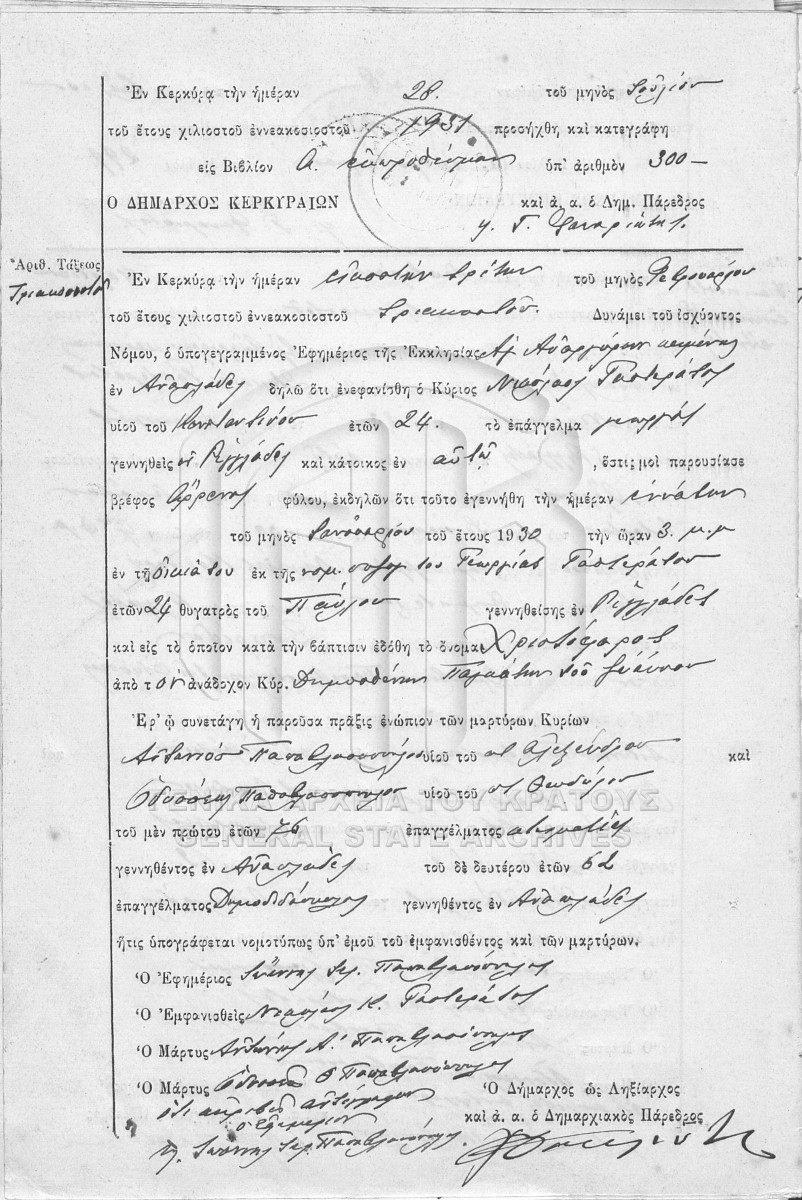 Ἐν Κερκύρᾳ τὴν ἡμέραν 28. τοῦ μηνὸς Ἰουλίου
τοῦ ἔτους χιλιοστοῦ ἐννεακοσιοστοῦ 1931 προσήχθη καὶ κατεγράφη
εἰς Βιβλίον Α. ἐκπροθέσμων ὑπ' ἀριθμὸν 300—
Ο ΔΗΜΑΡΧΟΣ ΚΕΡΚΥΡΑΙΩΝ καὶ ἀ. α. ὁ Δημ. Πάρεδρος
Ἀριθ. Τάξεως
Τριακοστοῦ
Ἐν Κερκύρᾳ τὴν ἡμέραν εἰκοστὴν τρίτην τοῦ μηνὸς Φεβρουαρίου
τοῦ ἔτους χιλιοστοῦ ἐννεακοσιοστοῦ τριακοστοῦ. Δυνάμει τοῦ ἰσχύοντος
Νόμου, ὁ ὑπογεγραμμένος Ἐφημέριος τῆς Ἐκκλησίας Ἁγ. Ἀναργύρων κειμένης
ἐν δηλῶ ὅτι ἐνεφανίσθη ὁ Κύριος Νικόλαος Γαστεράτος
υἱοῦ τοῦ Κωνσταντίνου ἐτῶν 24. τὸ ἐπάγγελμα γεωργὸς
γεννηθεὶς ἐν Ριγγλάδες καὶ κάτοικος ἐν αὐτῷ , ὅστις μοὶ παρουσίασε
βρέφος ἄρρενος φύλου, ἐκδηλῶν ὅτι τοῦτο ἐγεννήθη τὴν ἡμέραν ἐννάτην
τοῦ μηνὸς Ἰανουαρίου τοῦ ἔτους 1930 τὴν ὥραν 3. μ.μ
ἐν τῇ οἰκίᾳ του ἐκ τῆς νομ. συζύγ του Γεωργίας Γαστεράτου
ἐτῶν 24 θυγατρὸς τοῦ Παύλου γεννηθείσης ἐν Ριγγλάδες
καὶ εἰς τὸ ὁποῖον κατὰ τὴν βάπτισιν ἐδόθη τὸ ὄνομα Χριστόφορος
ἀπὸ τὸν ἀνάδοχον Κύρ. Δημοσθένην τοῦ Ἰωάννου
Ἐφ' ᾧ συνετάγη ἡ παροῦσα πρᾶξις ἐνώπιον τῶν μαρτύρων Κυρίων
Ἀντώνιος Παπαβλασόπουλος υἱοῦ τοῦ Ἀλεξάνδρου καὶ
Ὀδυσσέας Παπαβλασόπουλος υἱοῦ τοῦ Θεοδώρου
τοῦ μὲν πρώτου ἐτῶν 76 ἐπαγγέλματος κτηματίας
γεννηθέντος ἐν τοῦ δὲ δευτέρου ἐτῶν 62
ἐπαγγέλματος Δημοδιδάσκαλος γεννηθέντος ἐν
ἥτις ὑπογράφεται νομοτύπως ὑπ' ἐμοῦ τοῦ ἐμφανισθέντος καὶ τῶν μαρτύρων.
Ὁ Ἐφημέριος Ἰωάννης Ἱερ. Παπαβλασόπουλος
Ὁ Ἐμφανισθεὶς Νικόλαος Κ. Γαστεράτος
Ὁ Μάρτυς Ἀντώνιος Α. Παπαβλασόπουλος
Ὁ Μάρτυς Ὀδυσσέας Θ Παπαβλασόπουλος
Ὁ Δήμαρχος ὡς Ληξίαρχος
ὅτι ἀκριβὲς ἀντίγραφον
καὶ ἀ. α. ὁ Δημαρχιακὸς Πάρεδρος
ὁ Ἐφημέριος
Ἰωάννης Ἱερ. Παπαβλασόπουλος
ΓΕΝΙΚΑ ΑΡΧΕΙΑ ΤΟΥ ΚΡΑΤΟΥΣ
GENERAL STATE ARCHIVES